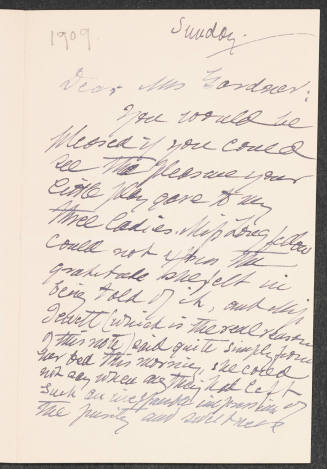 1909
Sunday
Dear Mrs Gardner:
You would be
pleased if you could
see the pleasure your
little play gave to my
three ladies. Miss Longfellow
could not express the
gratitude she felt in
being told of it, and Miss
Jewett (which is the real reason
of this note) said quite simply from
her bed this morning, she could
not say when anything had left
such an impression of
the purity and sweetness